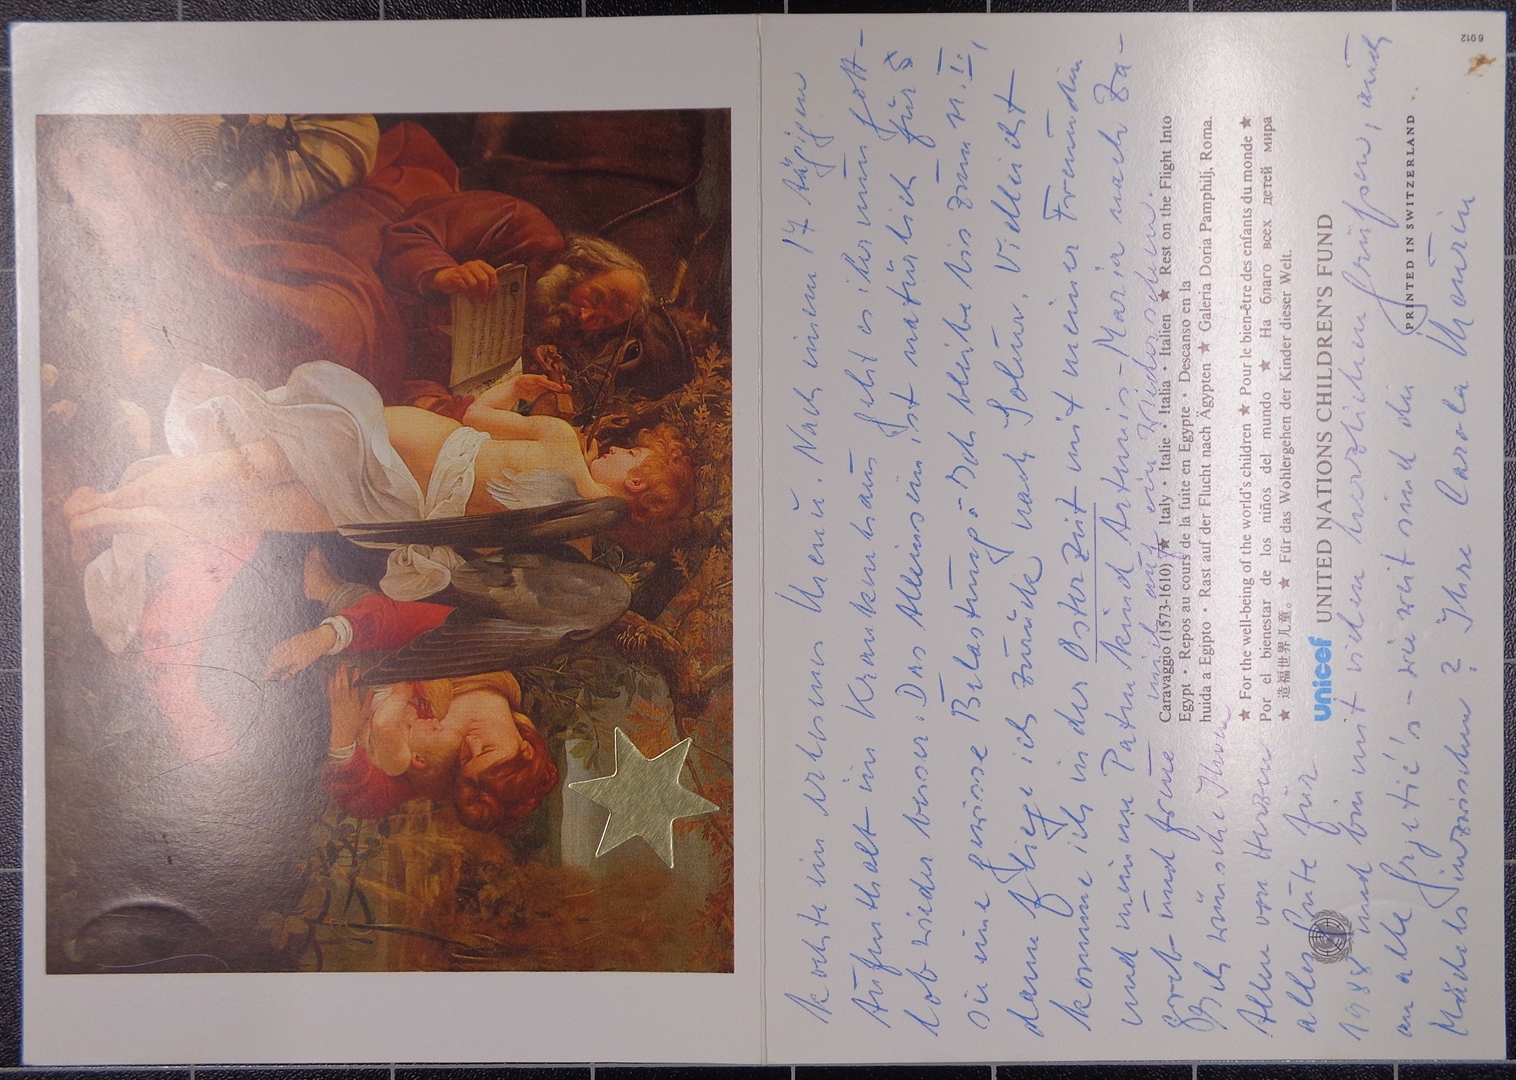 kochte ein erlesenes Menü. Nach einem 17 tägigen
Aufenthalt im Krankenhaus geht es ihr nun Gott-
lob wieder besser. Das Alleinsein ist natürlich für
sie eine gewisse Belastung. Ich bleibe bis zum 11. I.,
dann fliege ich zurück nach Solun. Vielleicht
komme ich in der Osterzeit mit meiner Freundin
und meinem Patenkind Artemis-Maria nach Za-
greb und freue mich auf ein Wiedersehen.
Ich wünsche Ihnen
Allen von Herzen
alles Gute für
1988 und bin mit vielen herzlichen Grüßen, auch
an alle Grgtić's - wie weit sind die
Mädels inzwischen? Ihre Carola
Caravaggio (1573-1610) ★ Italy · Italie · Italia · Italien ★ Rest on the Flight Into
Egypt · Repos au cours de la fuite en Egypte · Descanso en la
huida a Egipto · Rast auf der Flucht nach Ägypten ★ Galeria Doria Pamphilj, Roma.
★ For the well-being of the world's children ★ Pour le bien-être des enfants du monde ★
Por el bienestar de los niños del mundo ★ На благо всех детей мира
★ 造福世界儿童。 ★ Für das Wohlergehen der Kinder dieser Welt.
unicef UNITED NATIONS CHILDREN'S FUND
PRINTED IN SWITZERLAND
6012